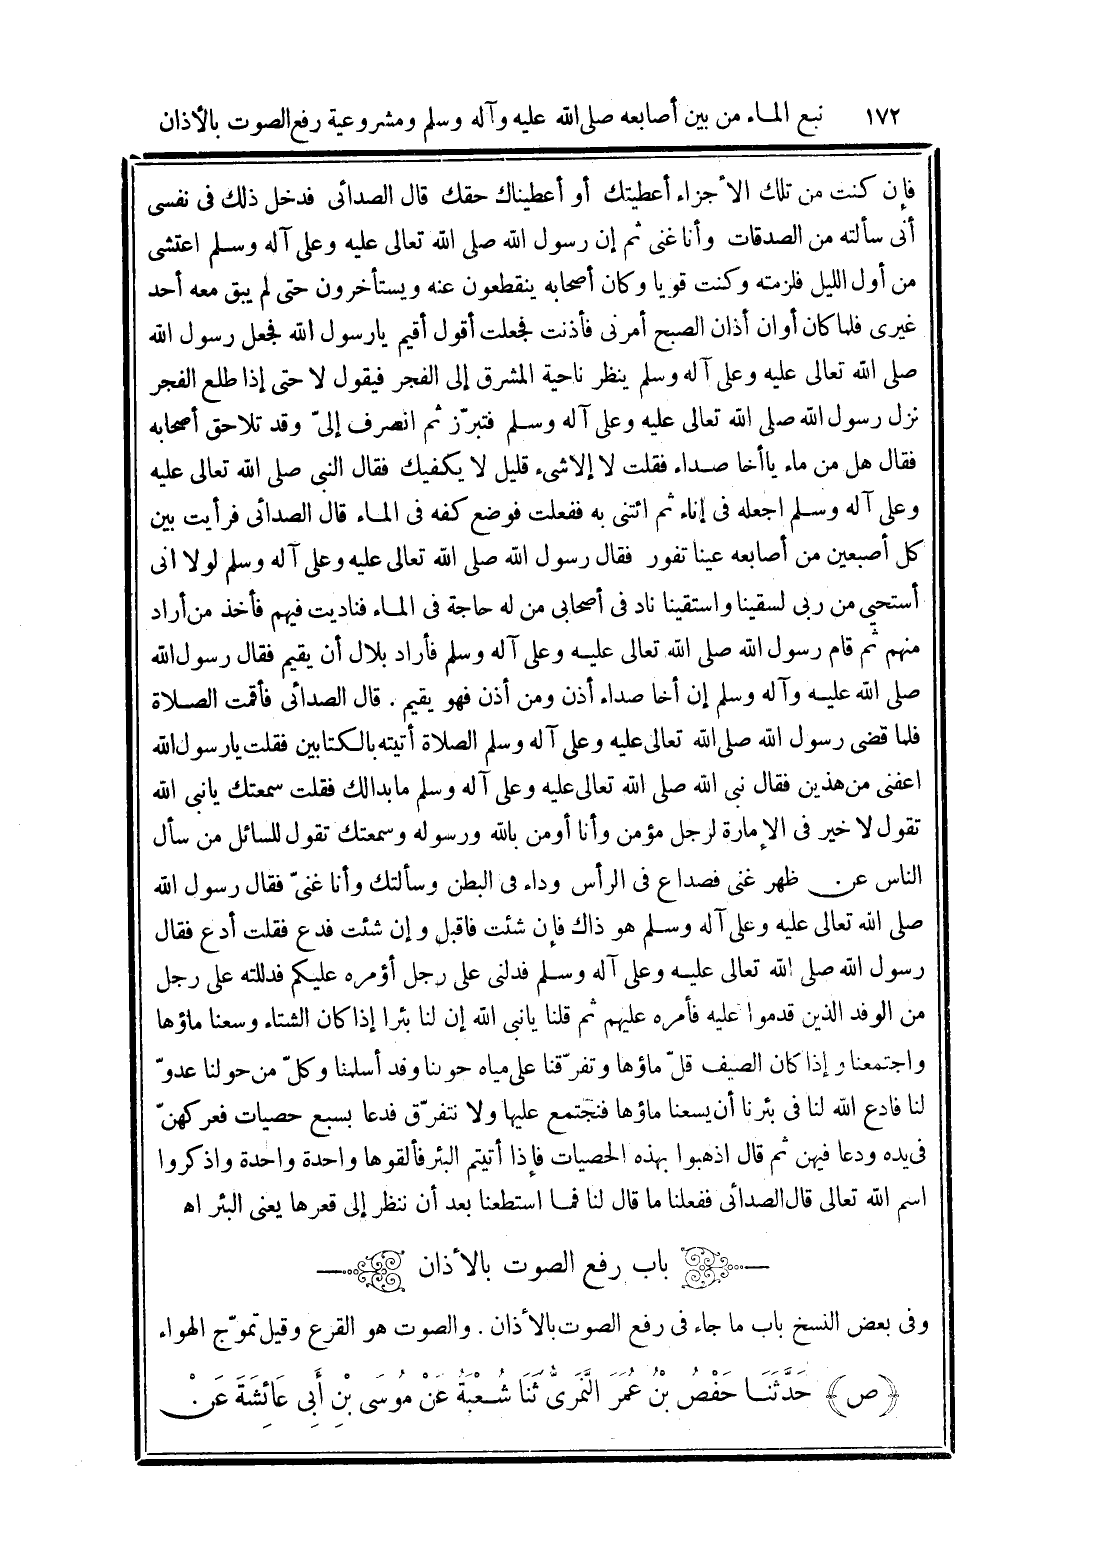 ١٧٢ نبع الماء من بين أصابعه صلى الله عليه وآله وسلم ومشروعية رفع الصوت بالأذان
فإن كنت من تلك الأجزاء أعطيتك أو أعطيناك حقك قال الصدائى فدخل ذلك فى نفسى
أنى سألته من الصدقات وأنا غنى ثم إن رسول الله صلى الله تعالى عليه وعلى آله وسلم اعتشى
من أول الليل فلزمته وكنت قويا وكان أصحابه ينقطعون عنه ويستأخرون حتى لم يبق معه أحد
غيرى فلما كان أوان أذان الصبح أمرنى فأذنت فجعلت أقول أقيم يارسول الله فجعل رسول الله
صلى الله تعالى عليه وعلى آله وسلم ينظر ناحية المشرق إلى الفجر فيقول لا حتى إذا طلع الفجر
نزل رسول الله صلى الله تعالى عليه وعلى آله وسلم فتبرّز ثم انصرف إلىّ وقد تلاحق أصحابه
فقال هل من ماء ياأخا صداء فقلت لا إلاشىء قليل لا يكفيك فقال النبى صلى الله تعالى عليه
وعلى آله وسلم اجعله فى إناء ثم ائتنى به ففعلت فوضع كفه فى الماء قال الصدائى فرأيت بين
كل أصبعين من أصابعه عينا تفور فقال رسول الله صلى الله تعالى عليه وعلى آله وسلم لولا انى
أستحيى من ربى لسقينا واستقينا ناد فى أصحابى من له حاجة فى الماء فناديت فيهم فأخذ من أراد
منهم ثم قام رسول الله صلى الله تعالى عليه وعلى آله وسلم فأراد بلال أن يقيم فقال رسول الله
صلى الله عليه وآله وسلم إن أخا صداء أذن ومن أذن فهو يقيم . قال الصدائى فأقمت الصلاة
فلما قضى رسول الله صلى الله تعالى عليه وعلى آله وسلم الصلاة أتيته بالكتابين فقلت يارسول الله
اعفنى من هذين فقال نبى الله صلى الله تعالى عليه وعلى آله وسلم مابدالك فقلت سمعتك يانبى الله
تقول لا خير فى الإمارة لرجل مؤمن وأنا أومن بالله ورسوله وسمعتك تقول للسائل من سأل
الناس عن ظهر غنى فصداع فى الرأس وداء فى البطن وسألتك وأنا غنىّ فقال رسول الله
صلى الله تعالى عليه وعلى آله وسلم هو ذاك فإن شئت فاقبل وإن شئت فدع فقلت أدع فقال
رسول الله صلى الله تعالى عليه وعلى آله وسلم فدلنى على رجل أؤمره عليكم فدللته على رجل
من الوفد الذين قدموا عليه فأمره عليهم ثم قلنا يانبى الله إن لنا بئرا إذا كان الشتاء وسعنا ماؤها
واجتمعنا وإذا كان الصيف قلّ ماؤها وتفرّقنا على مياه حولنا وقد أسلمنا وكلّ من حولنا عدوّ
لنا فادع الله لنا فى بئرنا أن يسعنا ماؤها فنجتمع عليها ولا نتفرّق فدعا بسبع حصيات فعركهنّ
فى يده ودعا فيهن ثم قال اذهبوا بهذه الحصيات فإذا أتيتم البئر فألقوها واحدة واحدة واذكروا
اسم الله تعالى قال الصدائى ففعلنا ما قال لنا فما استطعنا بعد أن ننظر إلى قعرها يعنى البئر اه
باب رفع الصوت بالأذان
وفى بعض النسخ باب ما جاء فى رفع الصوت بالأذان . والصوت هو القرع وقيل تموّج الهواء
﴿ص﴾ حَدَّثَنَا حَفْصُ بْنُ عُمَرَ النَّمَرِىُّ ثَنَا شُعْبَةُ عَنْ مُوسَى بْنِ أَبِى عَائِشَةَ عَنْ